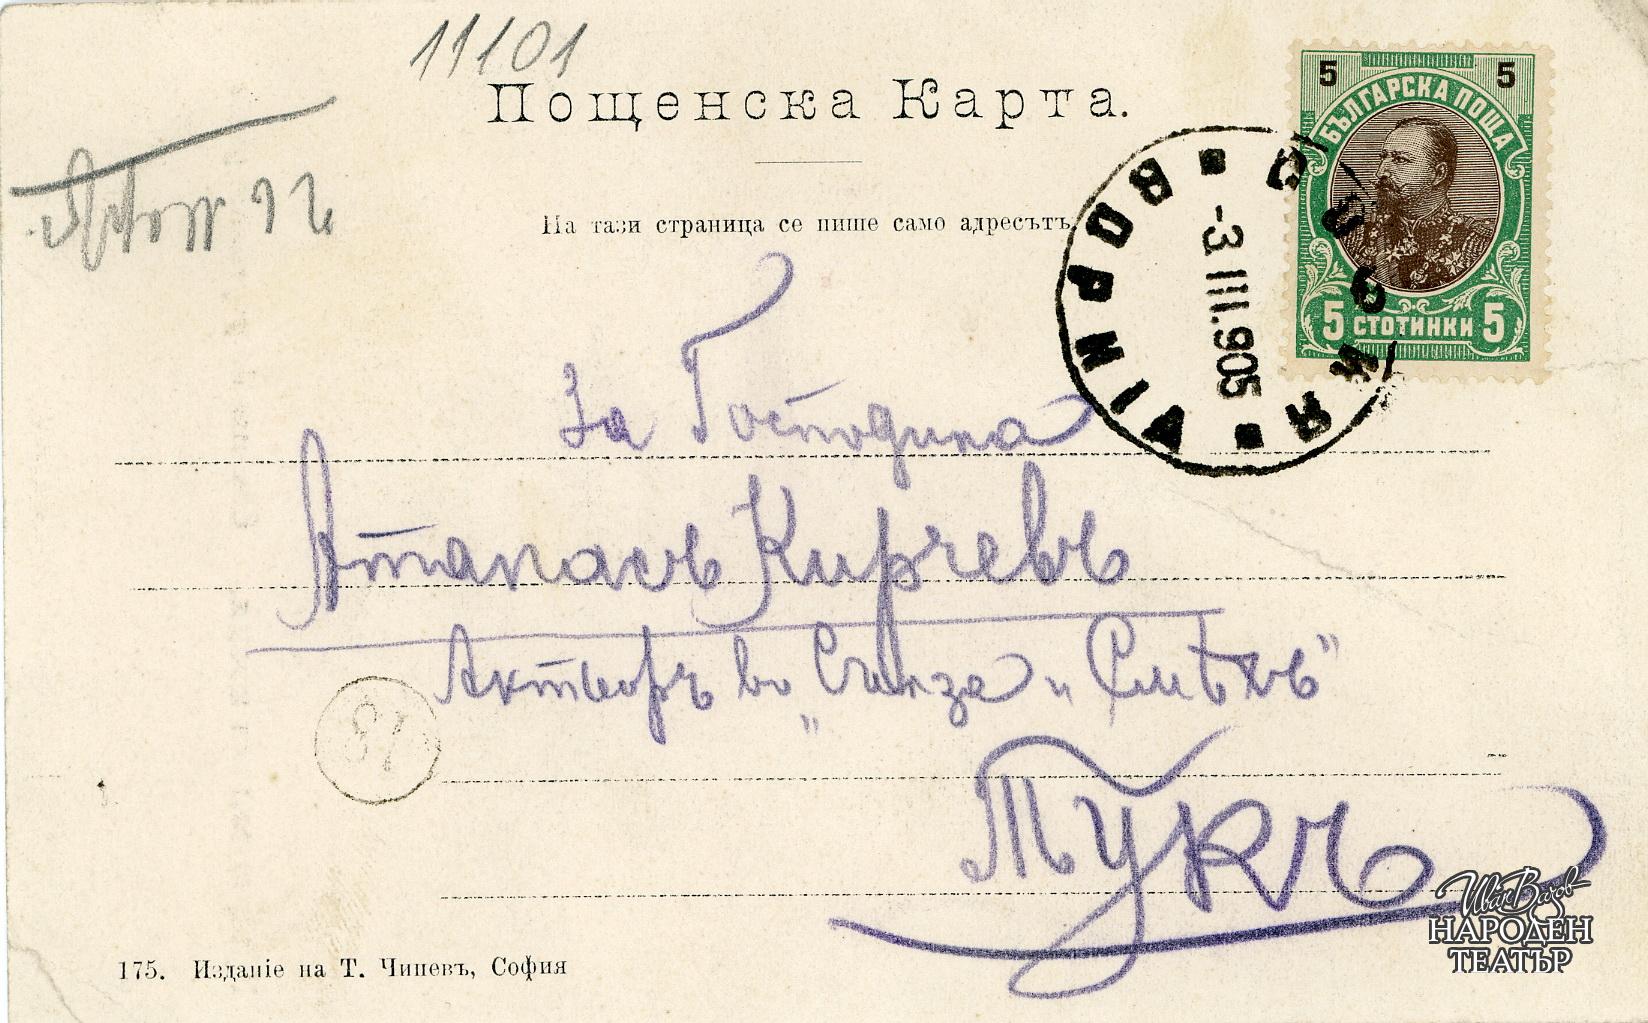 11101
Пощенска Карта.
На тази страница се пише само адресътъ
5 5
БЪЛГАРСКА ПОЩА
5 СТОТИНКИ 5
СОФИЯ
-3 III.905
За Господина
Атанасъ Кирчевъ
Актьоръ во „Сълза и Смѣхъ"
Тукъ
87
175. Издание на Т. Чипевъ, София
Иван Вазов
НАРОДЕН
ТЕАТЪР